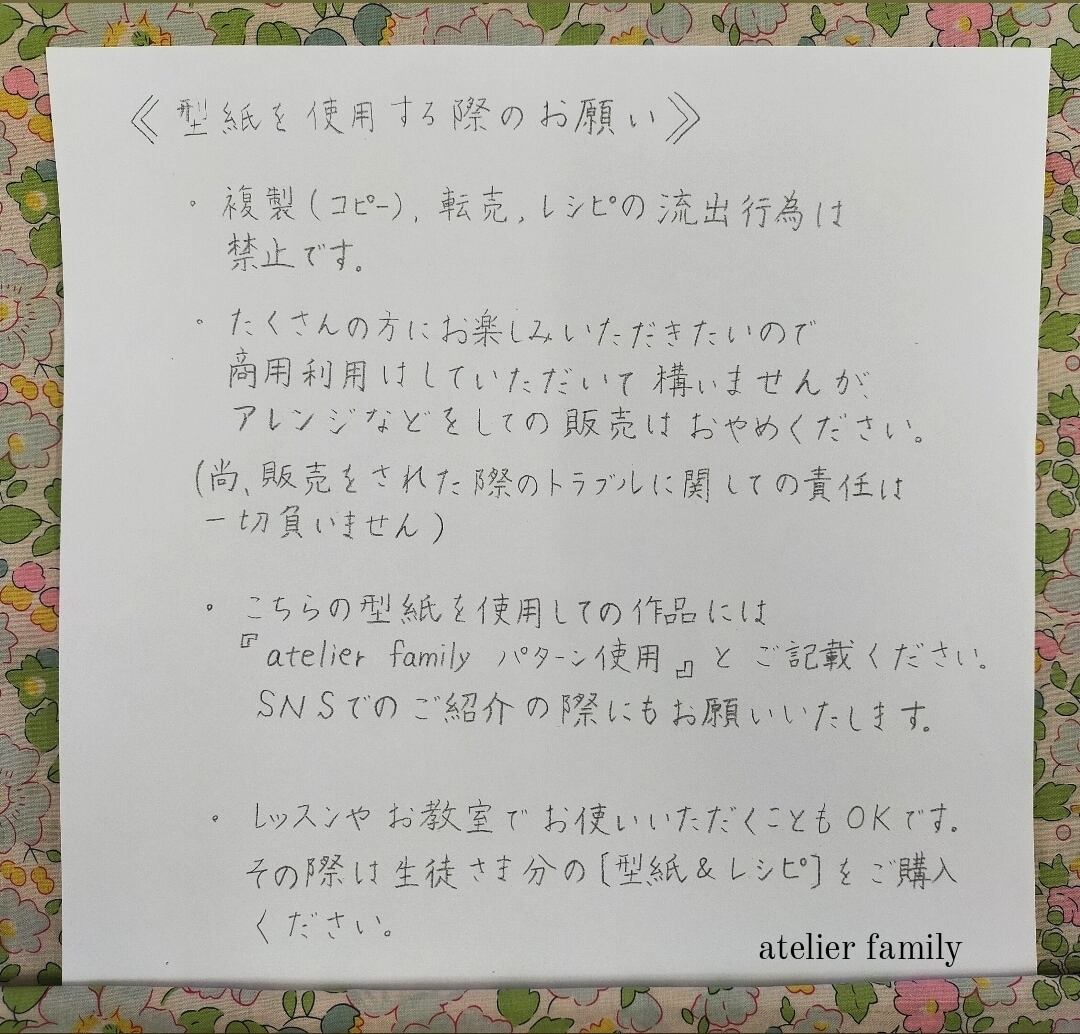 《型紙を使用する際のお願い》
・複製(コピー)、転売、レシピの流出行為は
禁止です。
・たくさんの方にお楽しみいただきたいので
商用利用はしていただいて構いませんが、
アレンジなどをしての販売はおやめください。
(尚、販売をされた際のトラブルに関しての責任は
一切負いません)
・こちらの型紙を使用しての作品には
『atelier family パターン使用』とご記載ください。
SNSでのご紹介の際にもお願いいたします。
・レッスンやお教室でお使いいただくこともOKです。
その際は生徒さま分の[型紙&レシピ]をご購入
ください。
atelier family